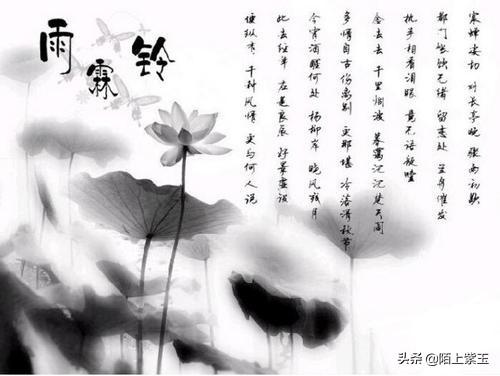 雨霖铃
寒蝉凄切 对长亭晚 骤雨初歇
都门帐饮无绪 留恋处 兰舟催发
执手相看泪眼 竟无语凝噎
念去去 千里烟波 暮霭沉沉楚天阔
多情自古伤离别 更那堪 冷落清秋节
今宵酒醒何处 杨柳岸 晓风残月
此去经年 应是良辰 好景虚设
便纵有 千种风情 更与何人说
头条 @陌上紫玉